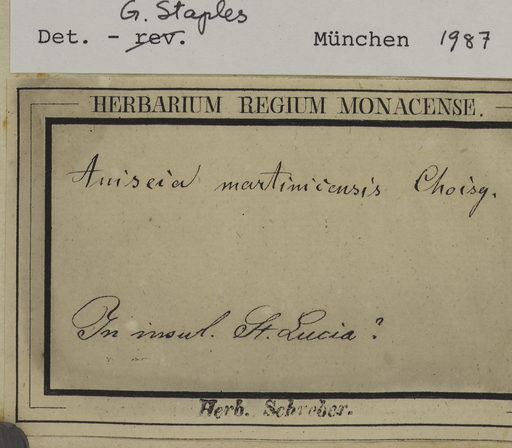 G. Staples
Det. - rev. München 1987
HERBARIUM REGIUM MONACENSE.
Aniseia martinicensis Choisy.
In insul. St. Lucia?
Herb. Schreber.